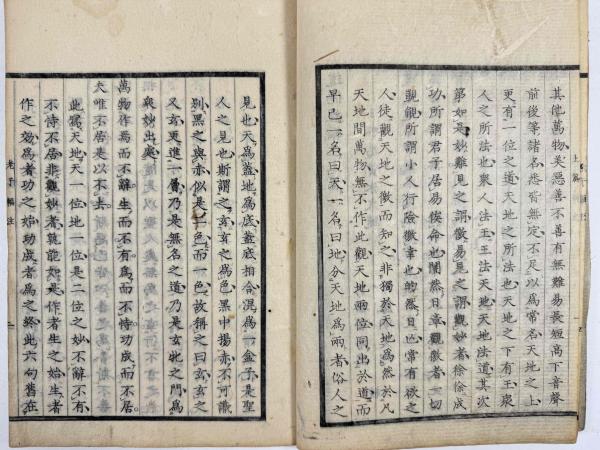 其他萬物美惡善不善有無難易長短高下音聲
前後等諸名悉皆無定不足以爲常名天地之上
更有一位之道天地之所法也天地之下有王衆
人之所法也衆人法王王法天地天地法道其次
第如是妙難見之謂徼易見之謂觀妙者徐徐成
功所謂君子居易俟命也闇然日章觀徼者一切
觀覬所謂小人行險徼幸也的然日亡常有欲之
人徒觀天地之徼而知之非獨於天地爲然於凡
天地間萬物無不作此觀天地兩位同出於道而
早已一名曰天一名曰地分天地爲兩者俗人之
見也天爲蓋地爲底蓋底相合混爲一盒子是聖
人之見也斯謂之玄玄之爲色黑中揚赤不可識
別黑之與赤似是一色而一色故稱之曰玄玄之
又玄更進一層乃是無名之道乃是玄牝之門爲
衆妙出焉
萬物作焉而不辭生而不有爲而不恃功成而不居
夫唯不居是以不去
此獨天地天一位地一位是二位之妙不辭不有
不恃不居非觀妙者孰能如是作者生之始生者
作之效爲者功之始功成者爲之終此六句舊在
老子 註
上篇